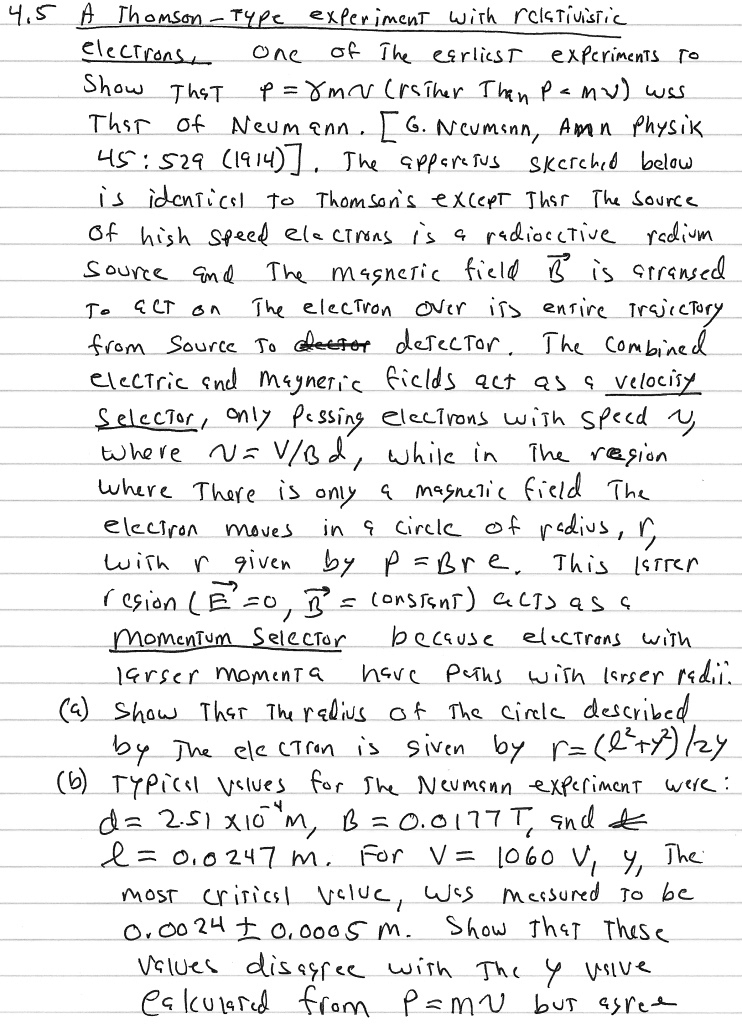 4.5 A Thomson-Type experiment with relativistic
electrons, One of The earliest experiments To
Show That p = γmv (rather Than p = mv) was
That of Neumann. [G. Neumann, Ann Physik
45:529 (1914)]. The apparatus sketched below
is identical to Thomson's except That The source
Of high speed electrons is a radioactive radium
Source and The magnetic field B⃗ is arranged
To act on The electron over its entire Trajectory
from Source To detector. The combined
electric and magnetic fields act as a velocity
selector, only passing electrons with speed v,
where v = V/Bd, while in The region
where There is only a magnetic field The
electron moves in a circle of radius, r,
with r given by p = Bre. This latter
region (E⃗=0, B⃗ = constant) acts as a
Momentum Selector because electrons with
larger momenta have paths with larger radii.
(a) Show That The radius of The circle described
by The electron is given by r=(l²+y²)/2y
(b) Typical values for The Neumann experiment were:
d= 2.51 x10⁻⁴m, B = 0.0177 T, and
l = 0.0247 m. For V = 1060 V, y, The
most critical value, was measured to be
0.0024 ± 0.0005 m. Show That These
values disagree with The y value
Calculated from p=mv but agree